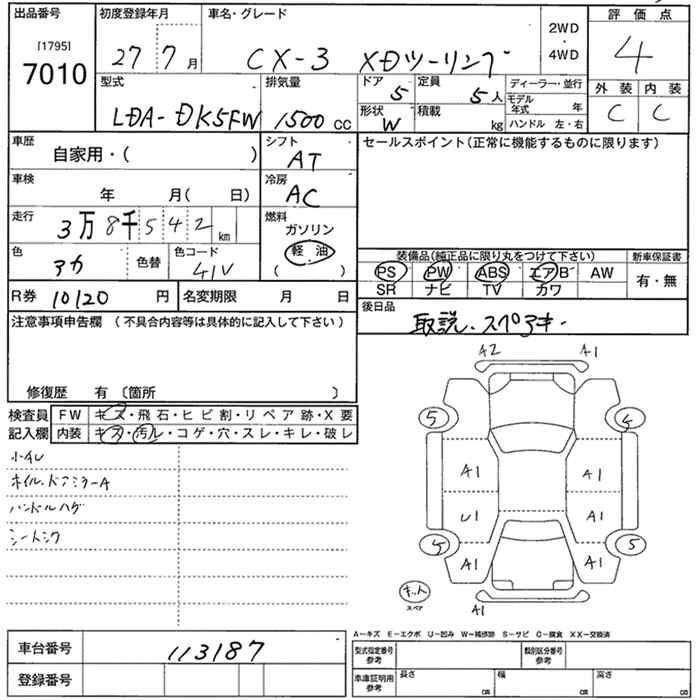 出品番号 初度登録年月 車名・グレード 評価点
[1795]
7010
27 7 月 CX-3 XDツーリング 2WD・4WD 4
型式 排気量 ドア 5 定員 5人 ディーラー・並行 外装 内装
LDA-DK5FW 1500 CC 形状 W 積載 kg モデル年式 年 C C
ハンドル 左・右
車歴 自家用・( ) シフト AT セールスポイント(正常に機能するものに限ります)
車検 年 月( 日) 冷房 AC
走行 3万8千542 km 燃料 ガソリン 軽油 ( )
色 アカ 色替 色コード 41V
装備品(純正品に限り丸をつけて下さい) 新車保証書
PS PW ABS エアB AW 有・無
SR ナビ TV カワ
R券 10120 円 名変期限 月 日 後日品
取説、スペアキー
注意事項申告欄 (不具合内容等は具体的に記入して下さい)
修復歴 有 〔箇所 〕
検査員記入欄 FW キズ・飛石・ヒビ割・リペア跡・X要
内装 キズ・汚レ・コゲ・穴・スレ・キレ・破レ
小キレ
ホイル、ドアミラーA
ハンドルハゲ
シートシワ
A2 A1
5 5
A1 A1
U1 A1
5 5
A1 A1
キット
スペア
A1
A-キズ E-エクボ U-凹み W-補修跡 S-サビ C-腐食 XX-交換済
車台番号 113187 型式指定番号 参考 類別区分番号 参考
登録番号 車庫証明用 参考 長さ cm 幅 cm 高さ cm